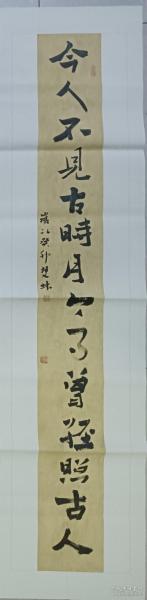 今人不見古時月今月曾經照古人
歲次癸卯